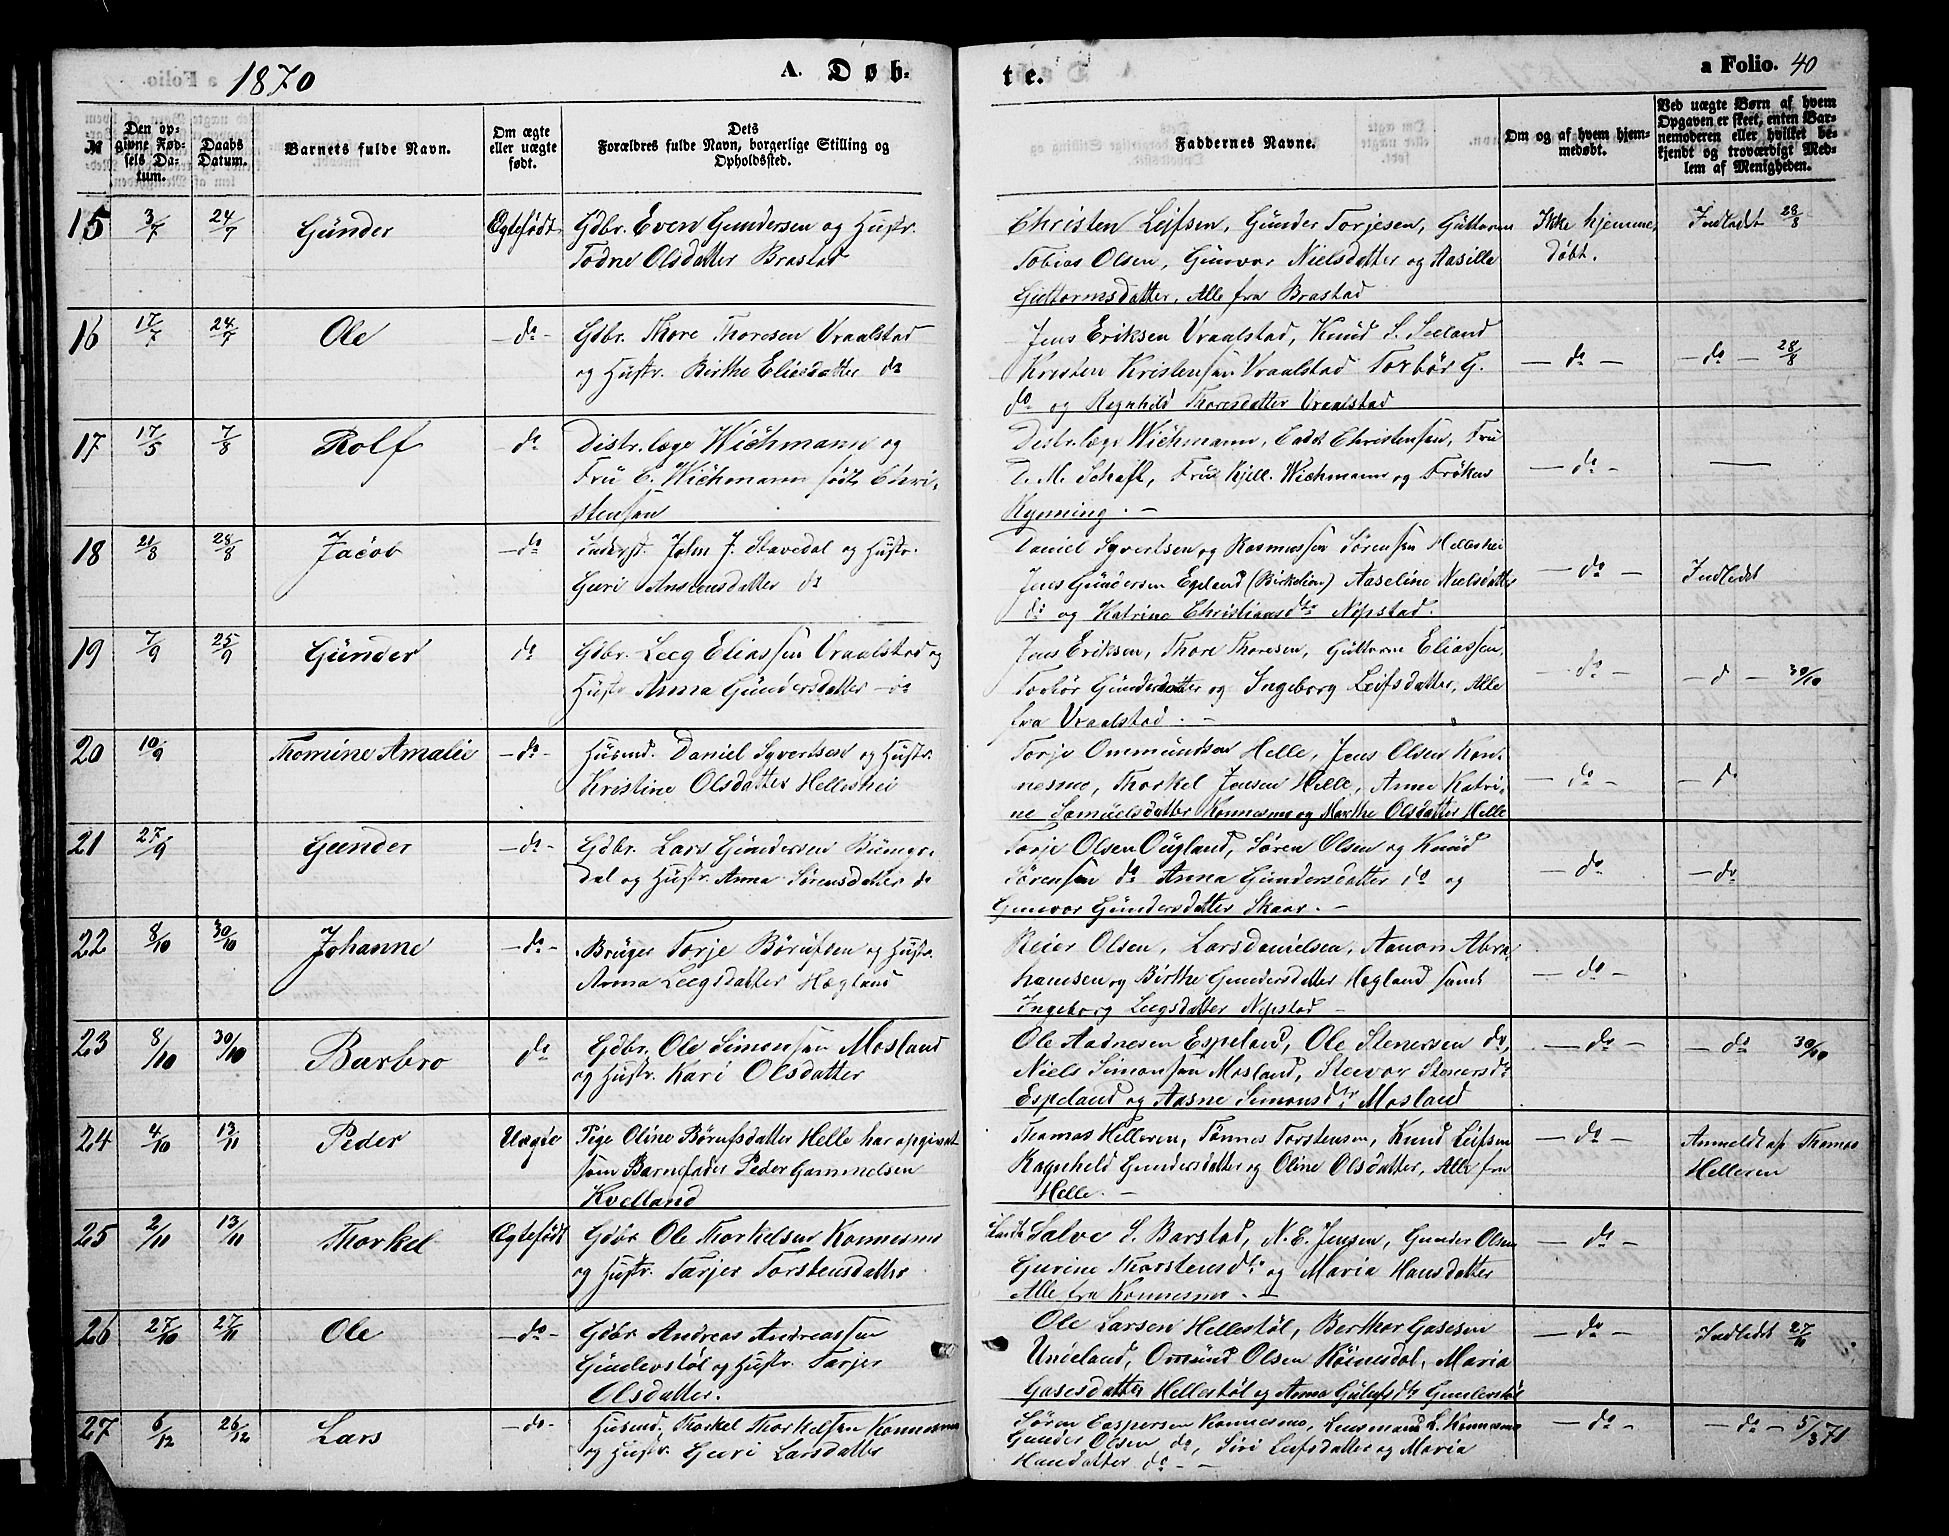 1870
A. Døb-
te.
a Folio. 40
№
Den op-
givne Fød-
sels Da-
tum.
Daabs
Datum.
Barnets fulde Navn.
Om ægte
eller uægte
født.
Dets
Forældres fulde Navn, borgerlige Stilling og
Opholdssted.
Faddernes Navne.
Om og af hvem hjem-
medøbt.
Ved uægte Børn af hvem
Opgaven er skeet, enten Bar-
nemoderen eller hvilket be-
kjendt og troværdigt Med-
lem af Menigheden.
15 3/7 24/7 Günder Ægtefødt Gdbr. Even Gundersen og Hustr.
Todne Olsdatter Brastad
Christen Leifsen, Günder Torjesen, Guttorm
Tobias Olsen, Gunvor Nielsdatter og Aasille
Guttormsdatter, Alle fra Brastad
Ikke hjemme,
døbt.
Indledet 28/8
16 17/7 24/7 Ole do Gdbr. Thore Thoresen Vraalstad
og Hustr. Birthe Eliasdatter do
Jens Eriksen Vraalstad, Knud S. Seeland
Kristen Kristensen Vraalstad Torbør G.
do og Ragnhild Thoresdatter Vraalstad
do
do 28/8
17 17/5 7/8 Rolf do Distr. læge Wichmann og
Fru C. Wichmann født Chri-
stensen
Distr. læge Wichmann, Cadet Christensen, Fru
D. M. Schaft, Frue Kjell. Wichmann og Frøken
Rynning. —
do
—
18 21/8 28/8 Jacob do Inderst. John J. Stavedal og Hustr.
Guri Anstensdatter do
Daniel Syvertsen og Rasmussen Sørensen Helleshei
Jens Gundersen Egeland (Birkelien) Aaseline Nielsdatter
do og Katrine Christiansdtr Nepstad.
do
Indledet
19 7/9 25/9 Günder do Gdbr. Leeg Eliassen Vraalstad og
Hustr Anna Gündersdatter do
Jens Eriksen, Thore Thoresen, Guttorm Eliassen,
Torbør Gündersdatter og Ingeborg Leifsdatter, Alle
fra Vraalstad. —
do
do 30/10
20 10/9 Thomine Amalie do Husmd. Daniel Syvertsen og Hustr.
Kristine Olsdatter Helleshei
Torje Ommundsen Helle, Jens Olsen Kon-
nesmo, Thorkel Jensen Helle, Anne Katri-
ne Samuelsdatter Konnesmo og Marthe Olsdatter Helle
do
do
21 27/9 Gunder do Gdbr. Lars Gundersen
dal og Hustr. Anna Sørensdatter do
Torje Olsen Øügland, Søren Olsen og Knud
Sørensen do Anna Gundersdatter do og
Gunvor Gündersdatter Skaar. —
do
do
22 8/10 30/10 Johanne do Bruger Torje Børufsen og Hustr.
Anna Leegsdatter Høgland
Reier Olsen, Lars Danielsen, Aanon Abra
hamsen og Birthe Gundersdatter Høgland samt
Ingeborg Leegsdatter Nepstad —
do
23 8/10 30/10 Barbro do Gdbr. Ole Simonsen Mosland
og Hustr. Kari Olsdatter
Ole Aadnesen Espeland, Ole Stenersen do,
Niels Simonsen Mosland, Steivor Stenersdtr
Espeland og Aasne Simonsdtr Mosland
do
do 30/10
24 4/10 13/11 Peder Uægte Pige Oline Børufsdatter Helle har opgivet
som Barnefader Peder Gammelsen
Kvelland
Thomas Helleren, Tønnes Torstensen, Knud Leifsen
Ragnhild Gundersdatter og Oline Olsdatter, Alle fra
Helle. —
do
Anmeldt af Thomas
Helleren
25 2/11 13/11 Thorkel Ægtefødt Gdbr Ole Thorkelsen Konnesmo
og Hustr. Tarjer Torstensdatter
Salve S. Barstad, N. E. Jensen, Gunder Olsen
Gurine Thorstensdtr og Maria Hansdatter
Alle fra Konnesmo. —
do
26 27/10 27/11 Ole do Gdbr Andreas Andreassen
Gunderstøl og Hustr. Tarjer
Olsdatter.
Ole Larsen Hellestøl, Berthor Gasesen
Unieland, Ommund Olsen Röinesdal, Maria
Gasesdatter Hellestøl og Anna dtr Gunderstøl
do
Indledet 27/11
27 6/12 26/12 Lars do Husmd, Thorkel Thorkelsen Konnesmo
og Hustr Guri Larsdatter
Søren Caspersen Konnesmo, Lensmand L. Konnesmo
Gunder Olsen do, Siri Leifsdatter og Maria
Hansdatter do —
do
do 5/3 71